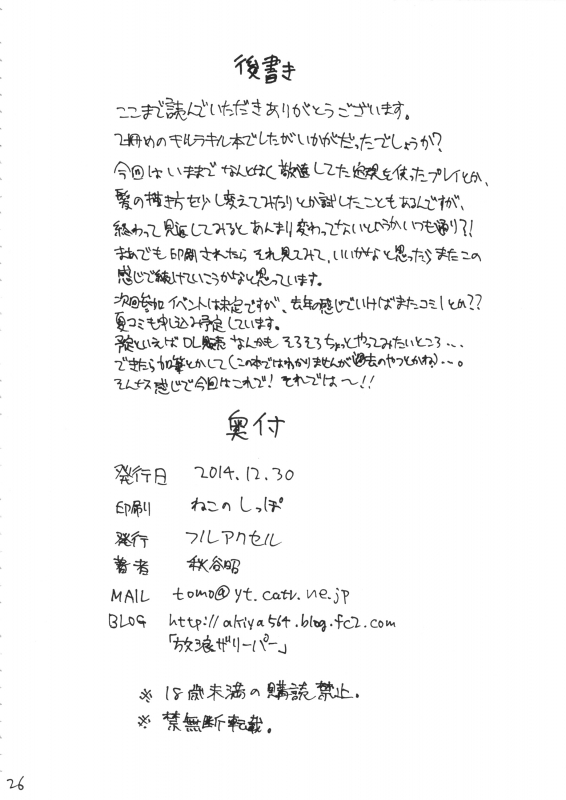 後書き
ここまで読んでいただきありがとうございます。
2冊めのキルラキル本でしたがいかがだったでしょうか?
今回はいままでなんとなく放置してた定規を使ったプレイとか、
髪の描き方を少し変えてみたりとか試したこともあるんですが、
終わって見返してみるとあんまり変わってないというかいつも通り?!
まあでも印刷されたらそれ見てみて、いいかなと思ったらまたこの
感じで続けていこうかなと思っています。
次回参加イベントは未定ですが、去年の感じでいけばまたコミ1とか??
夏コミも申し込み予定しています。
予定といえばDL販売なんかもそろそろちょっとやってみたいところ...
できたら加筆とかして(この本ではわかりませんが過去のやつとかね)...。
そんな感じで今回はこれで!それでは〜!!
奥付
発行日 2014.12.30
印刷 ねこのしっぽ
発行 フルアクセル
著者 秋谷昭
MAIL tomo@yt.catv.ne.jp
BLOG http://akiya564.blog.fc2.com
「放浪ザリーパー」
※18歳未満の購読禁止。
※禁無断転載。
26